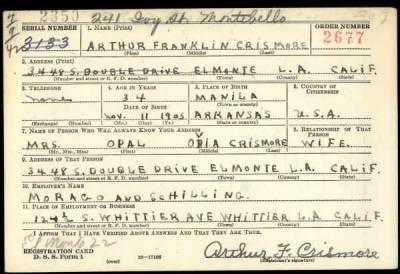 2350 241 Ivy St. Montebello
SERIAL NUMBER 1. NAME (Print) ORDER NUMBER
3133 ARTHUR FRANKLIN CRISMORE 2677
(First) (Middle) (Last)
2. ADDRESS (Print)
3448 S. DOUBLE DRIVE ELMONTE L.A. CALIF.
(Number and street or R. F. D. number) (Town) (County) (State)
3. TELEPHONE 4. AGE IN YEARS 5. PLACE OF BIRTH 6. COUNTRY OF CITIZENSHIP
none 34 MANILA
DATE OF BIRTH (Town or county)
Nov. 11 1905 ARKANSAS U.S.A.
(Exchange) (Number) (Mo.) (Day) (Yr.) (State or country)
7. NAME OF PERSON WHO WILL ALWAYS KNOW YOUR ADDRESS 8. RELATIONSHIP OF THAT PERSON
MRS. OPAL CRISMORE WIFE.
(Mr., Mrs., Miss) (First) (Middle) (Last)
9. ADDRESS OF THAT PERSON
3448 S. DOUBLE DRIVE ELMONTE L.A. CALIF.
(Number and street or R. F. D. number) (Town) (County) (State)
10. EMPLOYER'S NAME
MORAGO AND SCHILLING.
11. PLACE OF EMPLOYMENT OR BUSINESS
124½ S. WHITTIER AVE WHITTIER L.A. CALIF.
(Number and street or R. F. D. number) (Town) (County) (State)
I AFFIRM THAT I HAVE VERIFIED ABOVE ANSWERS AND THAT THEY ARE TRUE.
El Monte 22
REGISTRATION CARD
D. S. S. Form 1 (over) 16-17105 Arthur F. Crismore
(Registrant's signature)